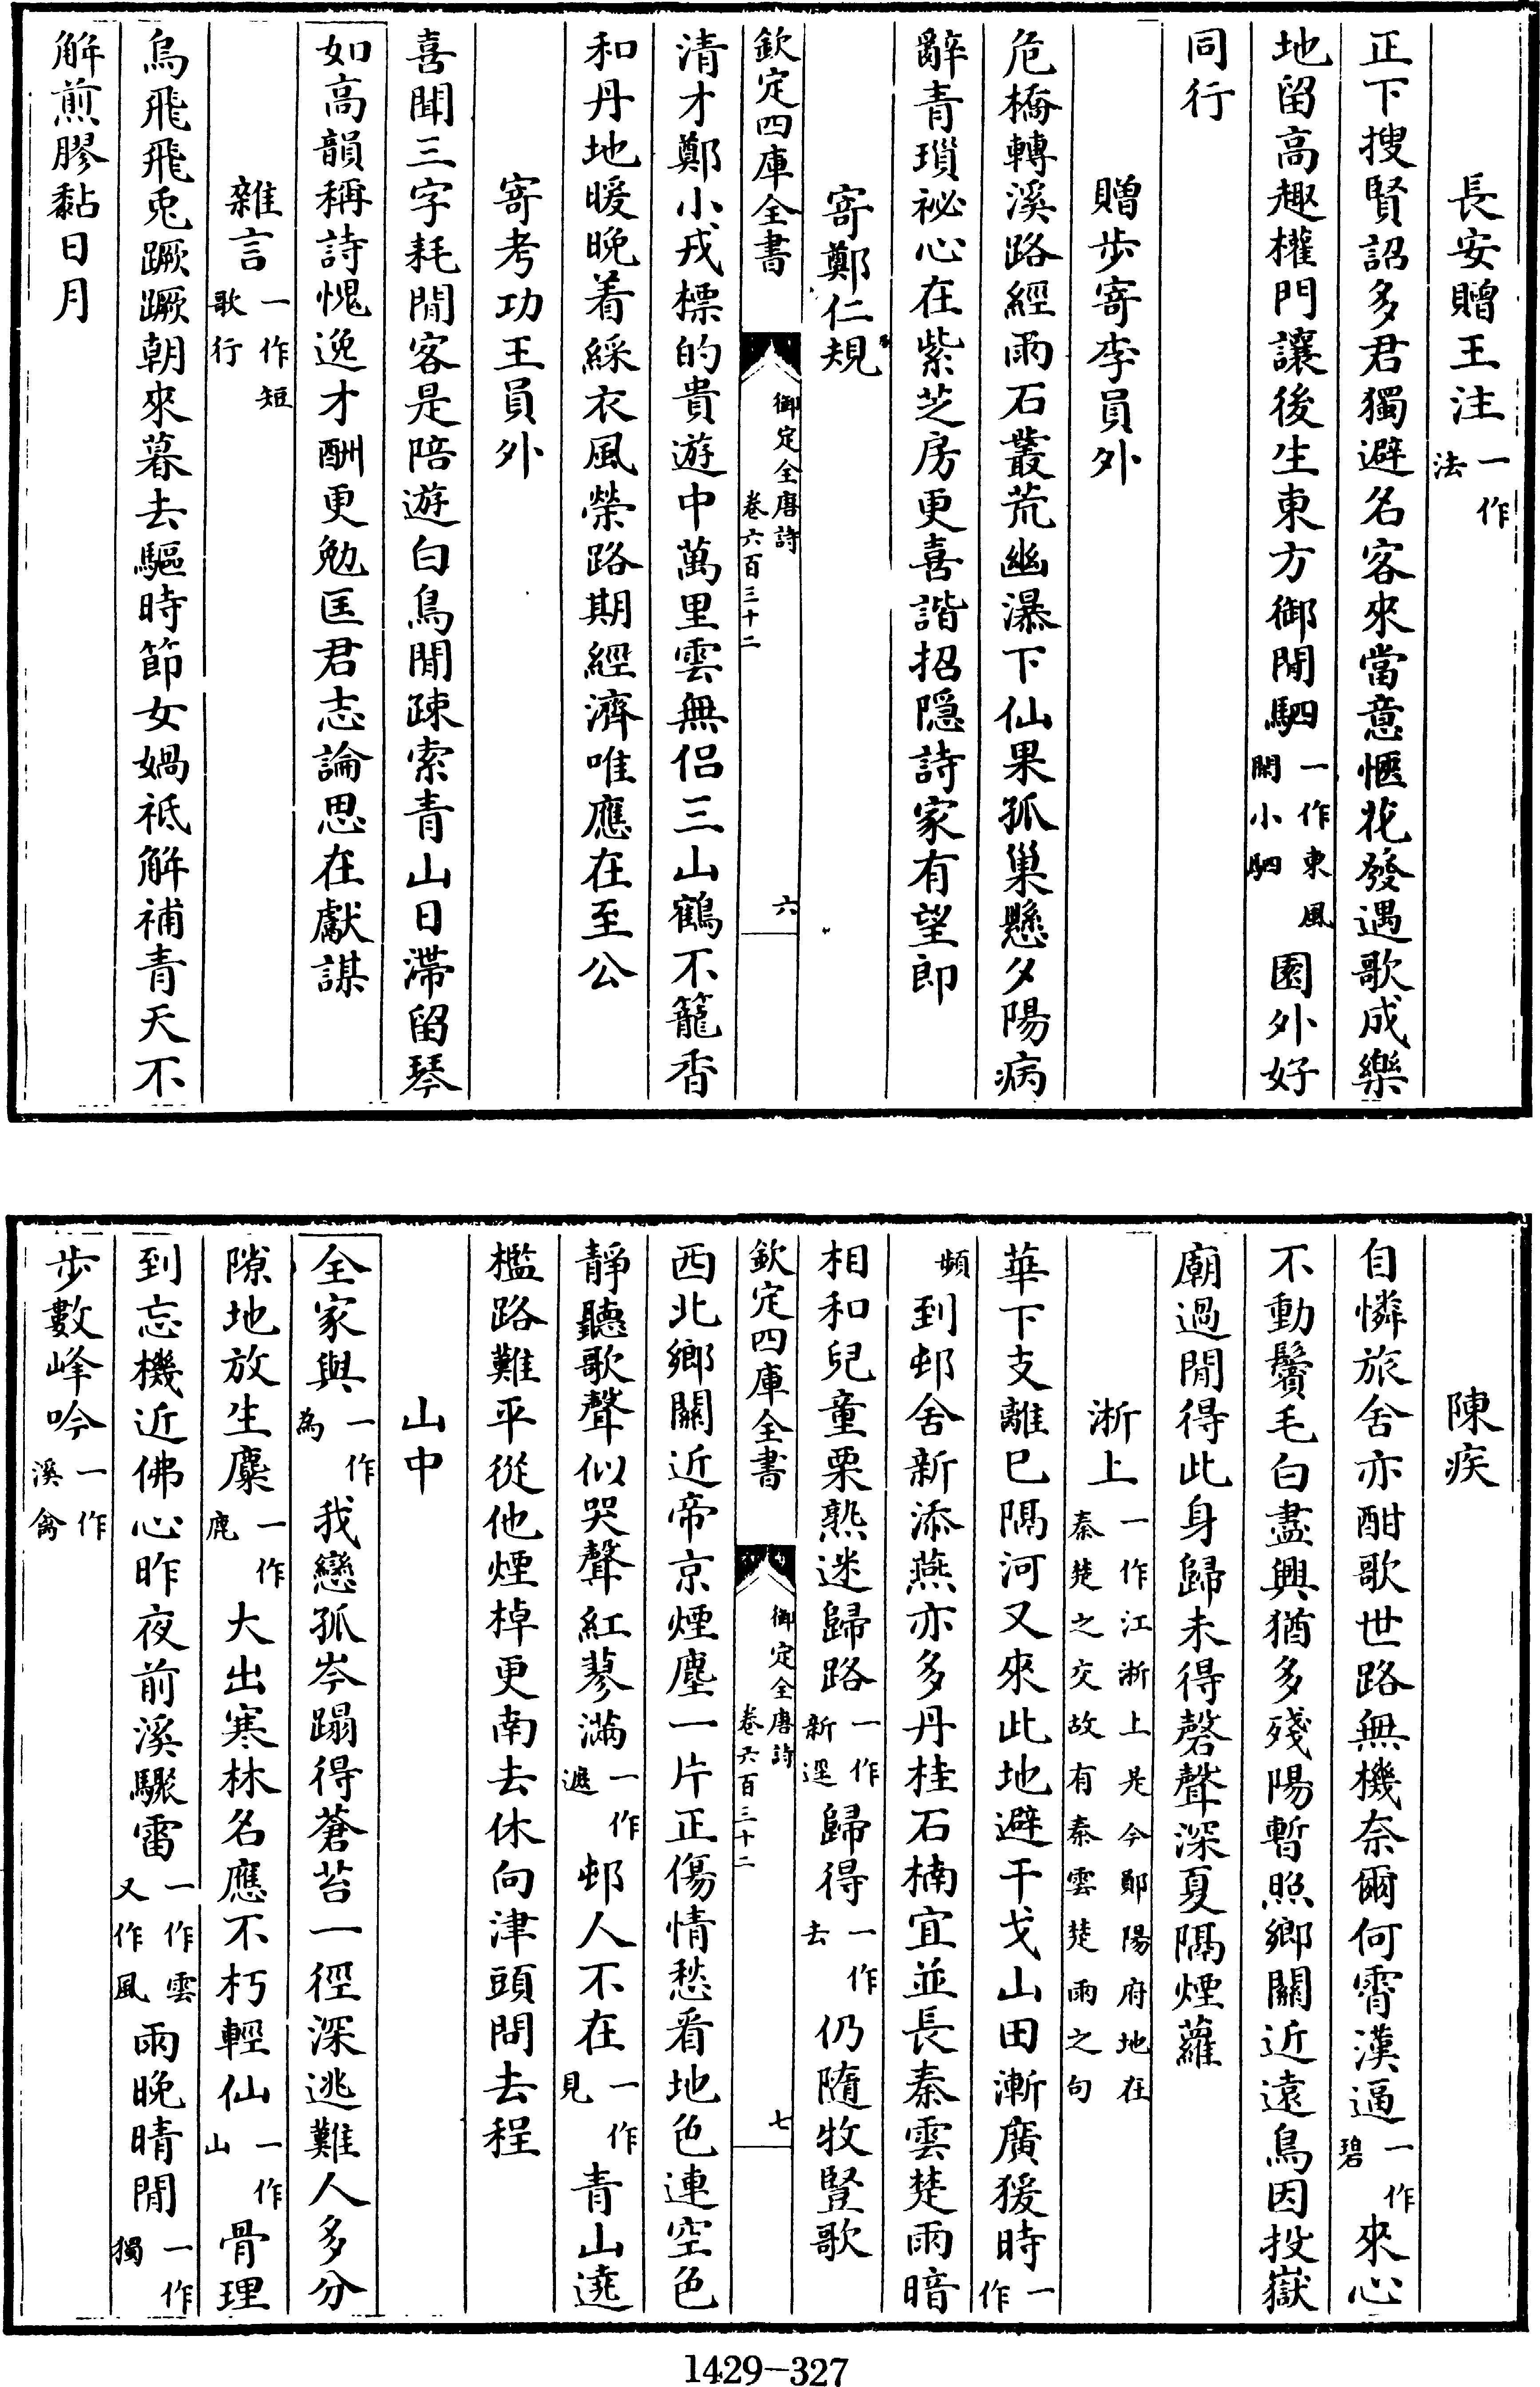 長安贈王注一作法
正下搜賢詔多君獨避名客來當意愜花發遇歌成樂
地留高趣權門讓後生東方御閒駟一作東風開小駟園外好
同行
贈步寄李員外
危橋轉溪路經雨石叢荒幽瀑下仙果孤巢懸夕陽病
辭青瑣祕心在紫芝房更喜諧招隱詩家有望郎
寄鄭仁規
欽定四庫全書 御定全唐詩卷六百三十二 六
清才鄭小戎標的貴遊中萬里雲無侶三山鶴不籠香
和丹地暖晚着綵衣風榮路期經濟唯應在至公
寄考功王員外
喜聞三字耗閒客是陪遊白鳥閒疎索青山日滯留琴
如高韻稱詩愧逸才酬更勉匡君志論思在獻謀
雜言一作短歌行
烏飛飛兎蹶蹶朝來暮去驅時節女媧祗解補青天不
解煎膠黏日月
陳疾
自憐旅舍亦酣歌世路無機奈爾何霄漢逼一作碧來心
不動鬢毛白盡興猶多殘陽暫照鄉關近遠鳥因投嶽
廟過閒得此身歸未得磬聲深夏隔煙蘿
淅上一作江淅上是今鄖陽府地在秦楚之交故有秦雲楚雨之句
華下支離已隔河又來此地避干戈山田漸廣猨時一作
頻到邨舍新添燕亦多丹桂石楠宜並長秦雲楚雨暗
相和兒童栗熟迷歸路一作新逕歸得一作去仍隨牧豎歌
欽定四庫全書 御定全唐詩卷六百三十二 七
西北鄉關近帝京煙塵一片正傷情愁看地色連空色
靜聽歌聲似哭聲紅蓼滿一作遮邨人不在一作見青山遶
檻路難平從他煙棹更南去休向津頭問去程
山中
全家與一作為我戀孤岑蹋得蒼苔一徑深逃難人多分
隙地放生麋一作鹿大出寒林名應不朽輕仙一作山骨理
到忘機近佛心昨夜前溪驟雷一作雲又作風雨晚晴閒一作獨
步數峰吟一作溪禽
1429-327